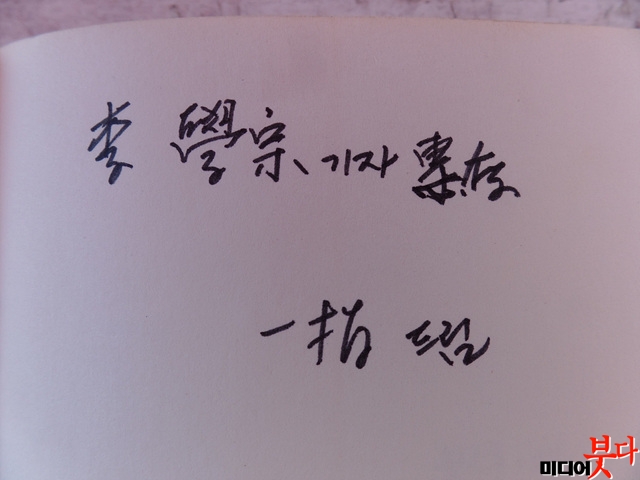 李 學宗 기자 惠存
一指 드림
미디어붓다